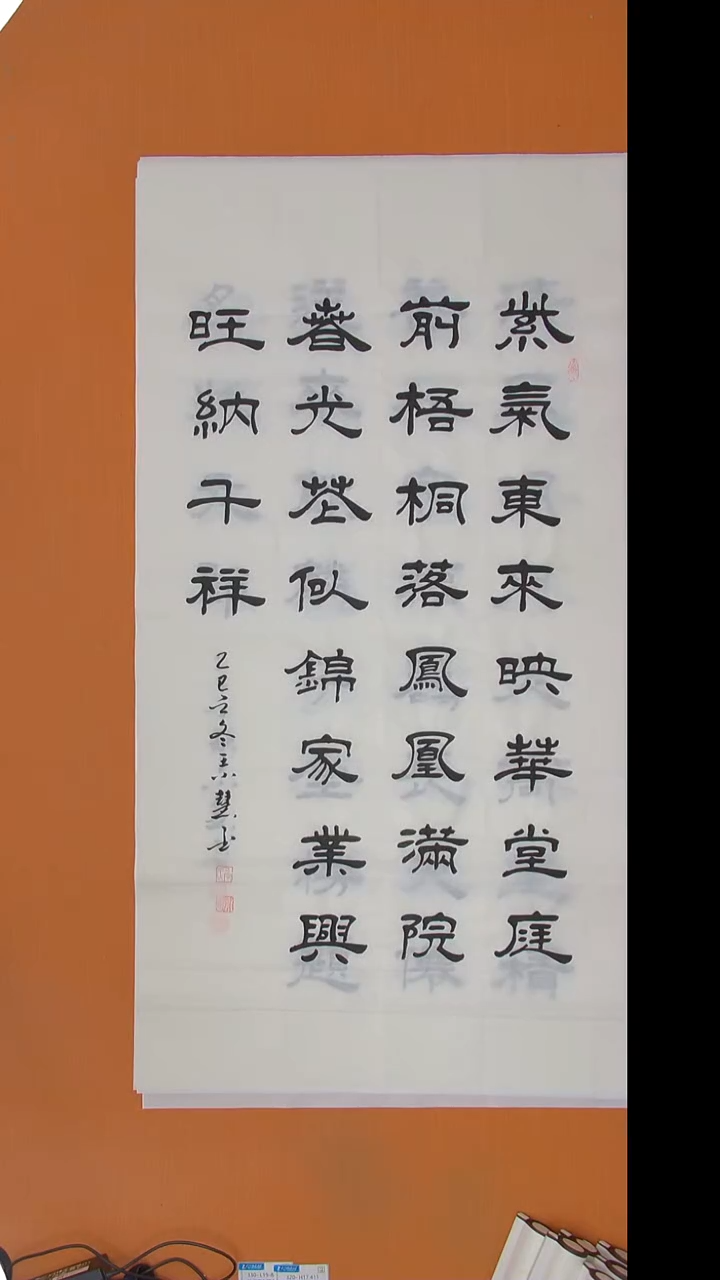 紫氣東來映華堂庭
前梧桐落鳳凰滿院
春光花似錦家業興
旺納千祥
乙巳立冬 慧书